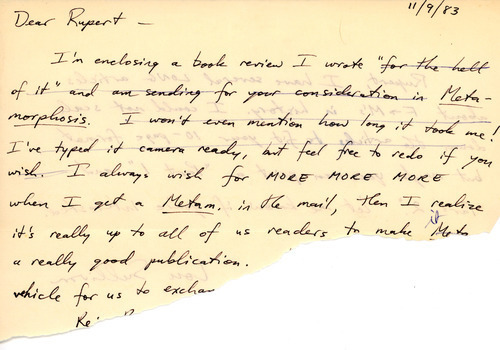 11/9/83
Dear Rupert —
I'm enclosing a book review I wrote "for the hell
of it" and am sending for your consideration in Meta-
morphosis. I won't even mention how long it took me!
I've typed it camera ready, but feel free to redo if you
wish. I always wish for MORE MORE MORE
when I get a Metam. in the mail, then I realize
it's really up to all of us readers to make it
a really good publication.
vehicle for us to exchan